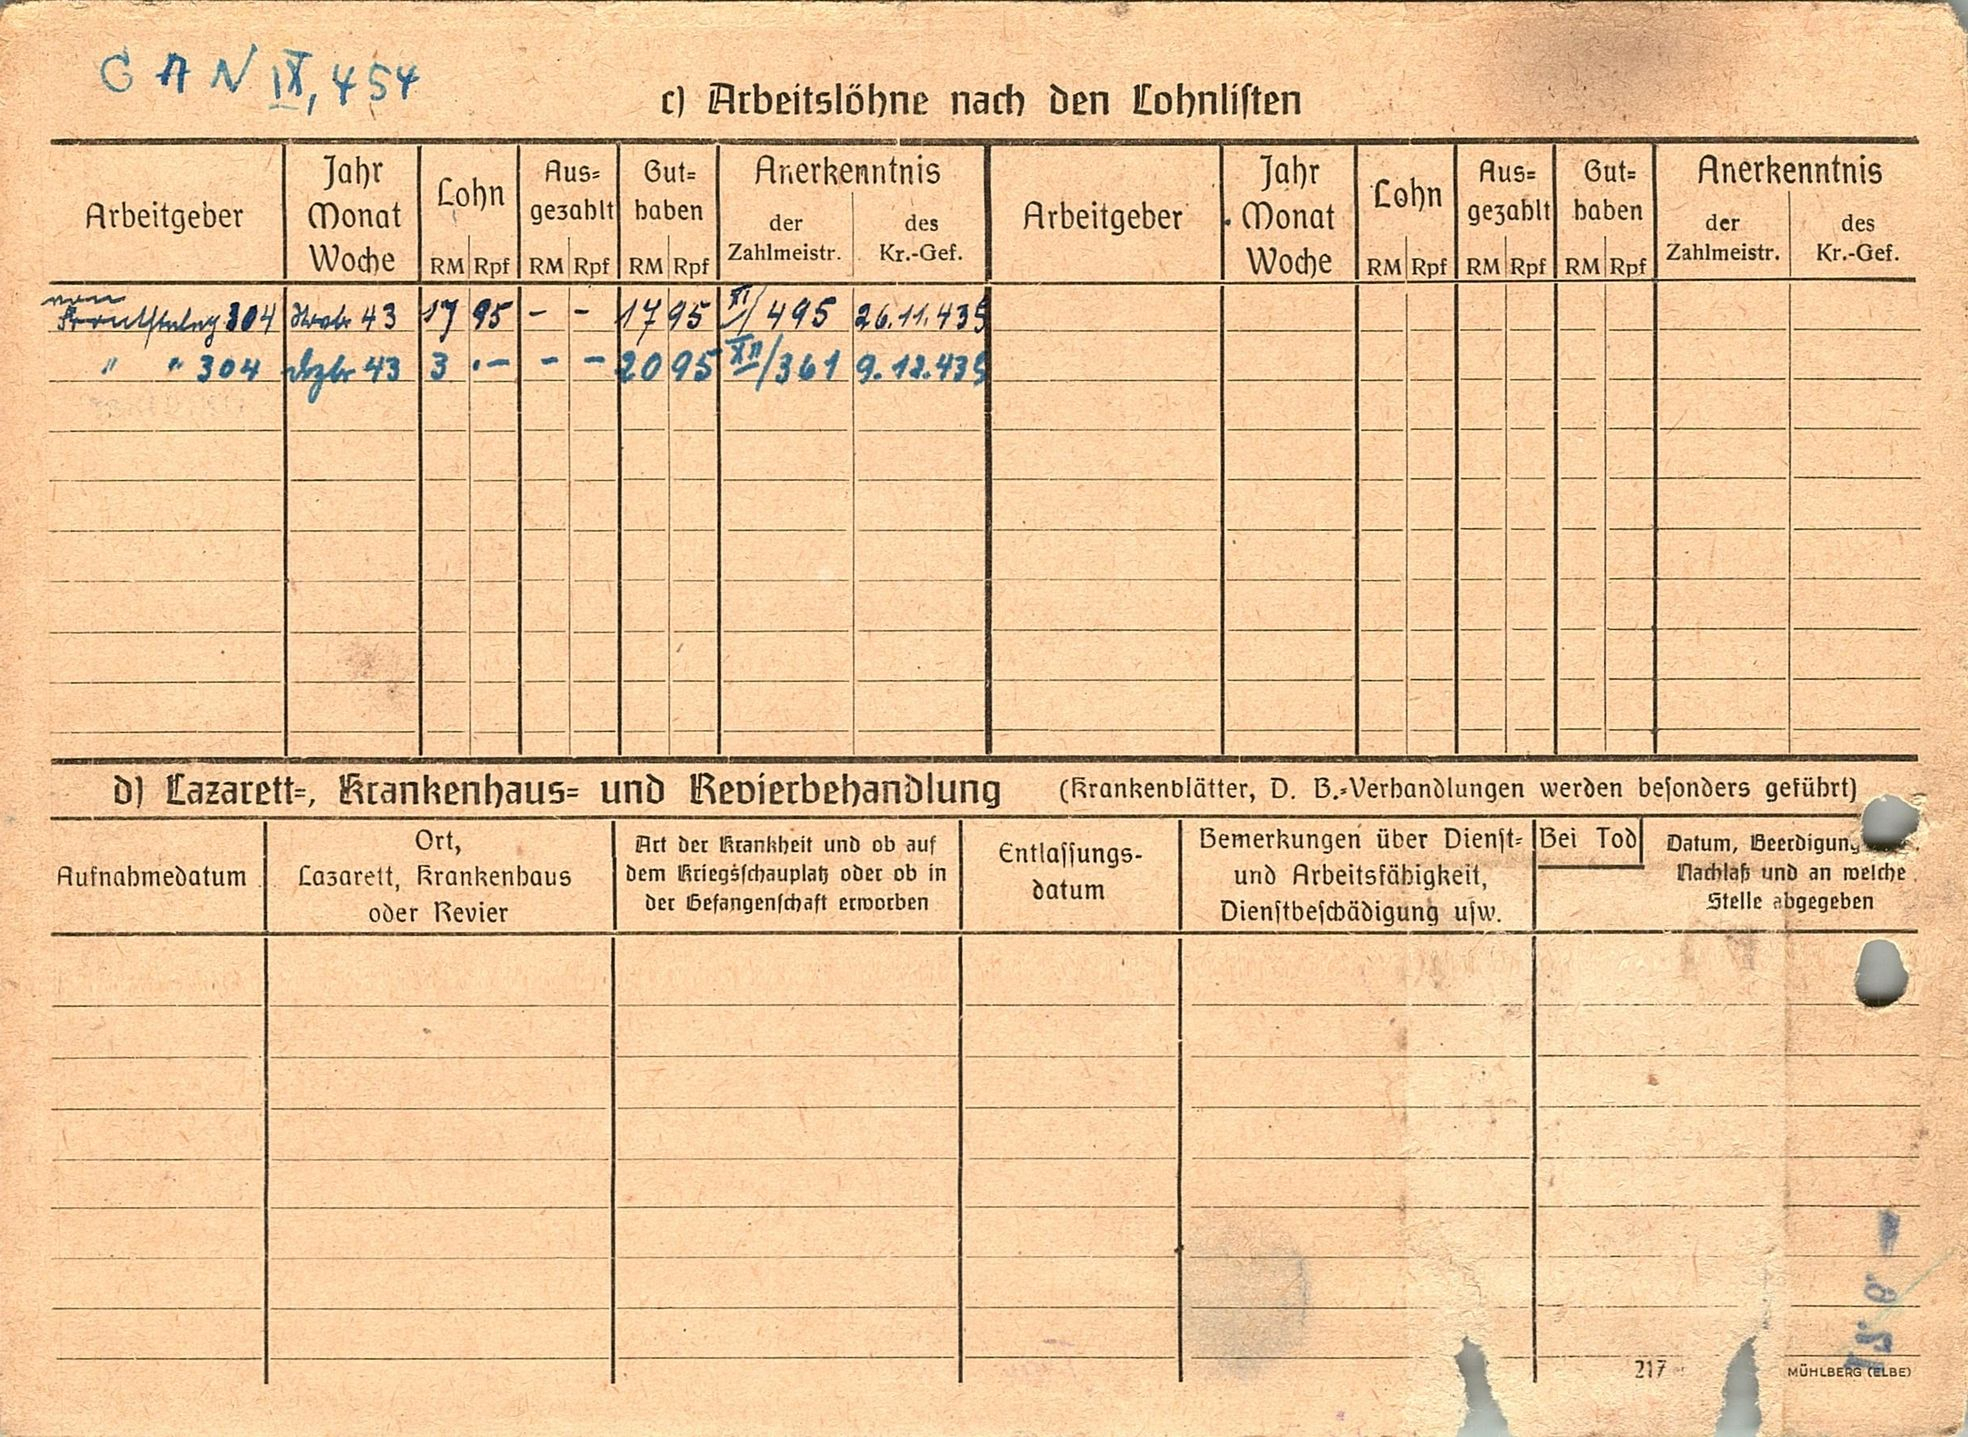 G A N IX, 454
c) Arbeitslöhne nach den Lohnlisten
Arbeitgeber
Jahr
Monat
Woche
Lohn
RM Rpf
Aus=
gezahlt
RM Rpf
Gut=
haben
RM Rpf
Anerkenntnis
der
Zahlmeistr.
des
Kr.-Gef.
Arbeitgeber
Jahr
Monat
Woche
Lohn
RM Rpf
Aus=
gezahlt
RM Rpf
Gut=
haben
RM Rpf
Anerkenntnis
der
Zahlmeistr.
des
Kr.-Gef.
von
Frontstalag 304 Novbr 43 17 95 - - 17 95 XI/495 26.11.43
" " 304 Dezbr 43 3 .- - - 20 95 XII/361 9.12.43
d) Lazarett=, Krankenhaus= und Revierbehandlung (Krankenblätter, D. B.=Verhandlungen werden besonders geführt)
Aufnahmedatum
Ort,
Lazarett, Krankenhaus
oder Revier
Art der Krankheit und ob auf
dem Kriegsschauplatz oder ob in
der Gefangenschaft erworben
Entlassungs-
datum
Bemerkungen über Dienst=
und Arbeitsfähigkeit,
Dienstbeschädigung usw.
Bei Tod
Datum, Beerdigung
Nachlaß und an welche
Stelle abgegeben
217
MÜHLBERG (ELBE)